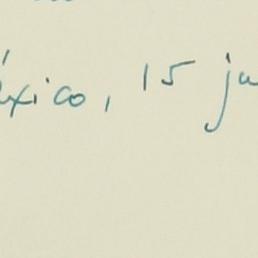 éxico, 15 ju